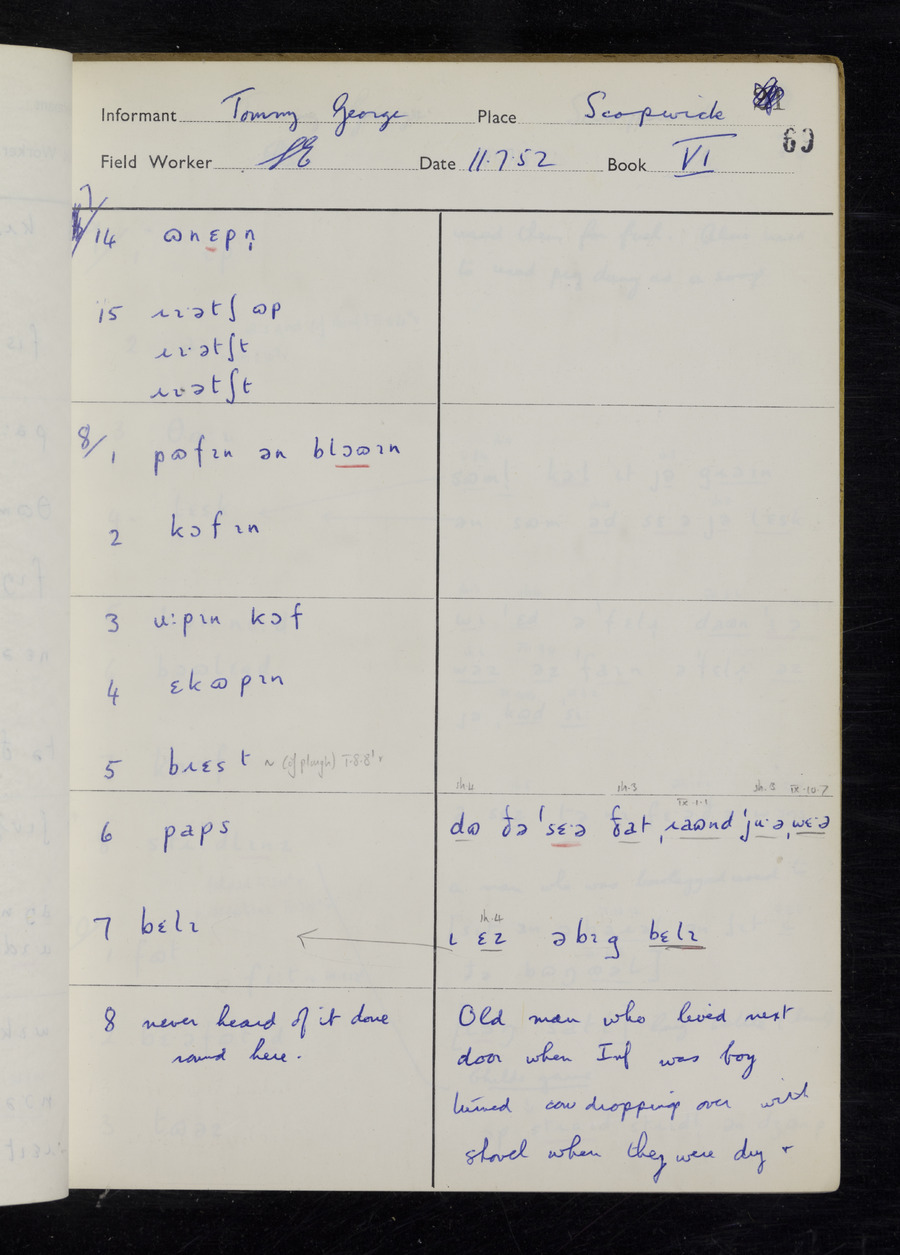 Informant Tommy George Place Scopwick
Field Worker SE Date 11·7·52 Book VI
69
7/14 ɷnɛpn̩
15 ɹɪ·ətʃ ɷp
ɹɪ·ətʃt
ɹɪ·ətʃt
8/1 pɷfɪn ən blɔɷɪn
2 kɔfɪn
3 u:pɪn kɔf
4 ɛkɷpɪn
5 bɹɛst ~ (of plough) I·8·8'
6 paps
7 bɛlɪ
8 never heard of it done
round here.
sh.4 sh.3 IX·1·1 sh.3 IX·10·7
dɷ ðə 'sɛ·ə ðat ˌɹaɷnd 'ju·əˌwɛ·ə
sh.4
ɪ ɛz əbɪg bɛlɪ
Old man who lived next
door when Inf was boy
turned cow droppings over with
shovel when they were dry +